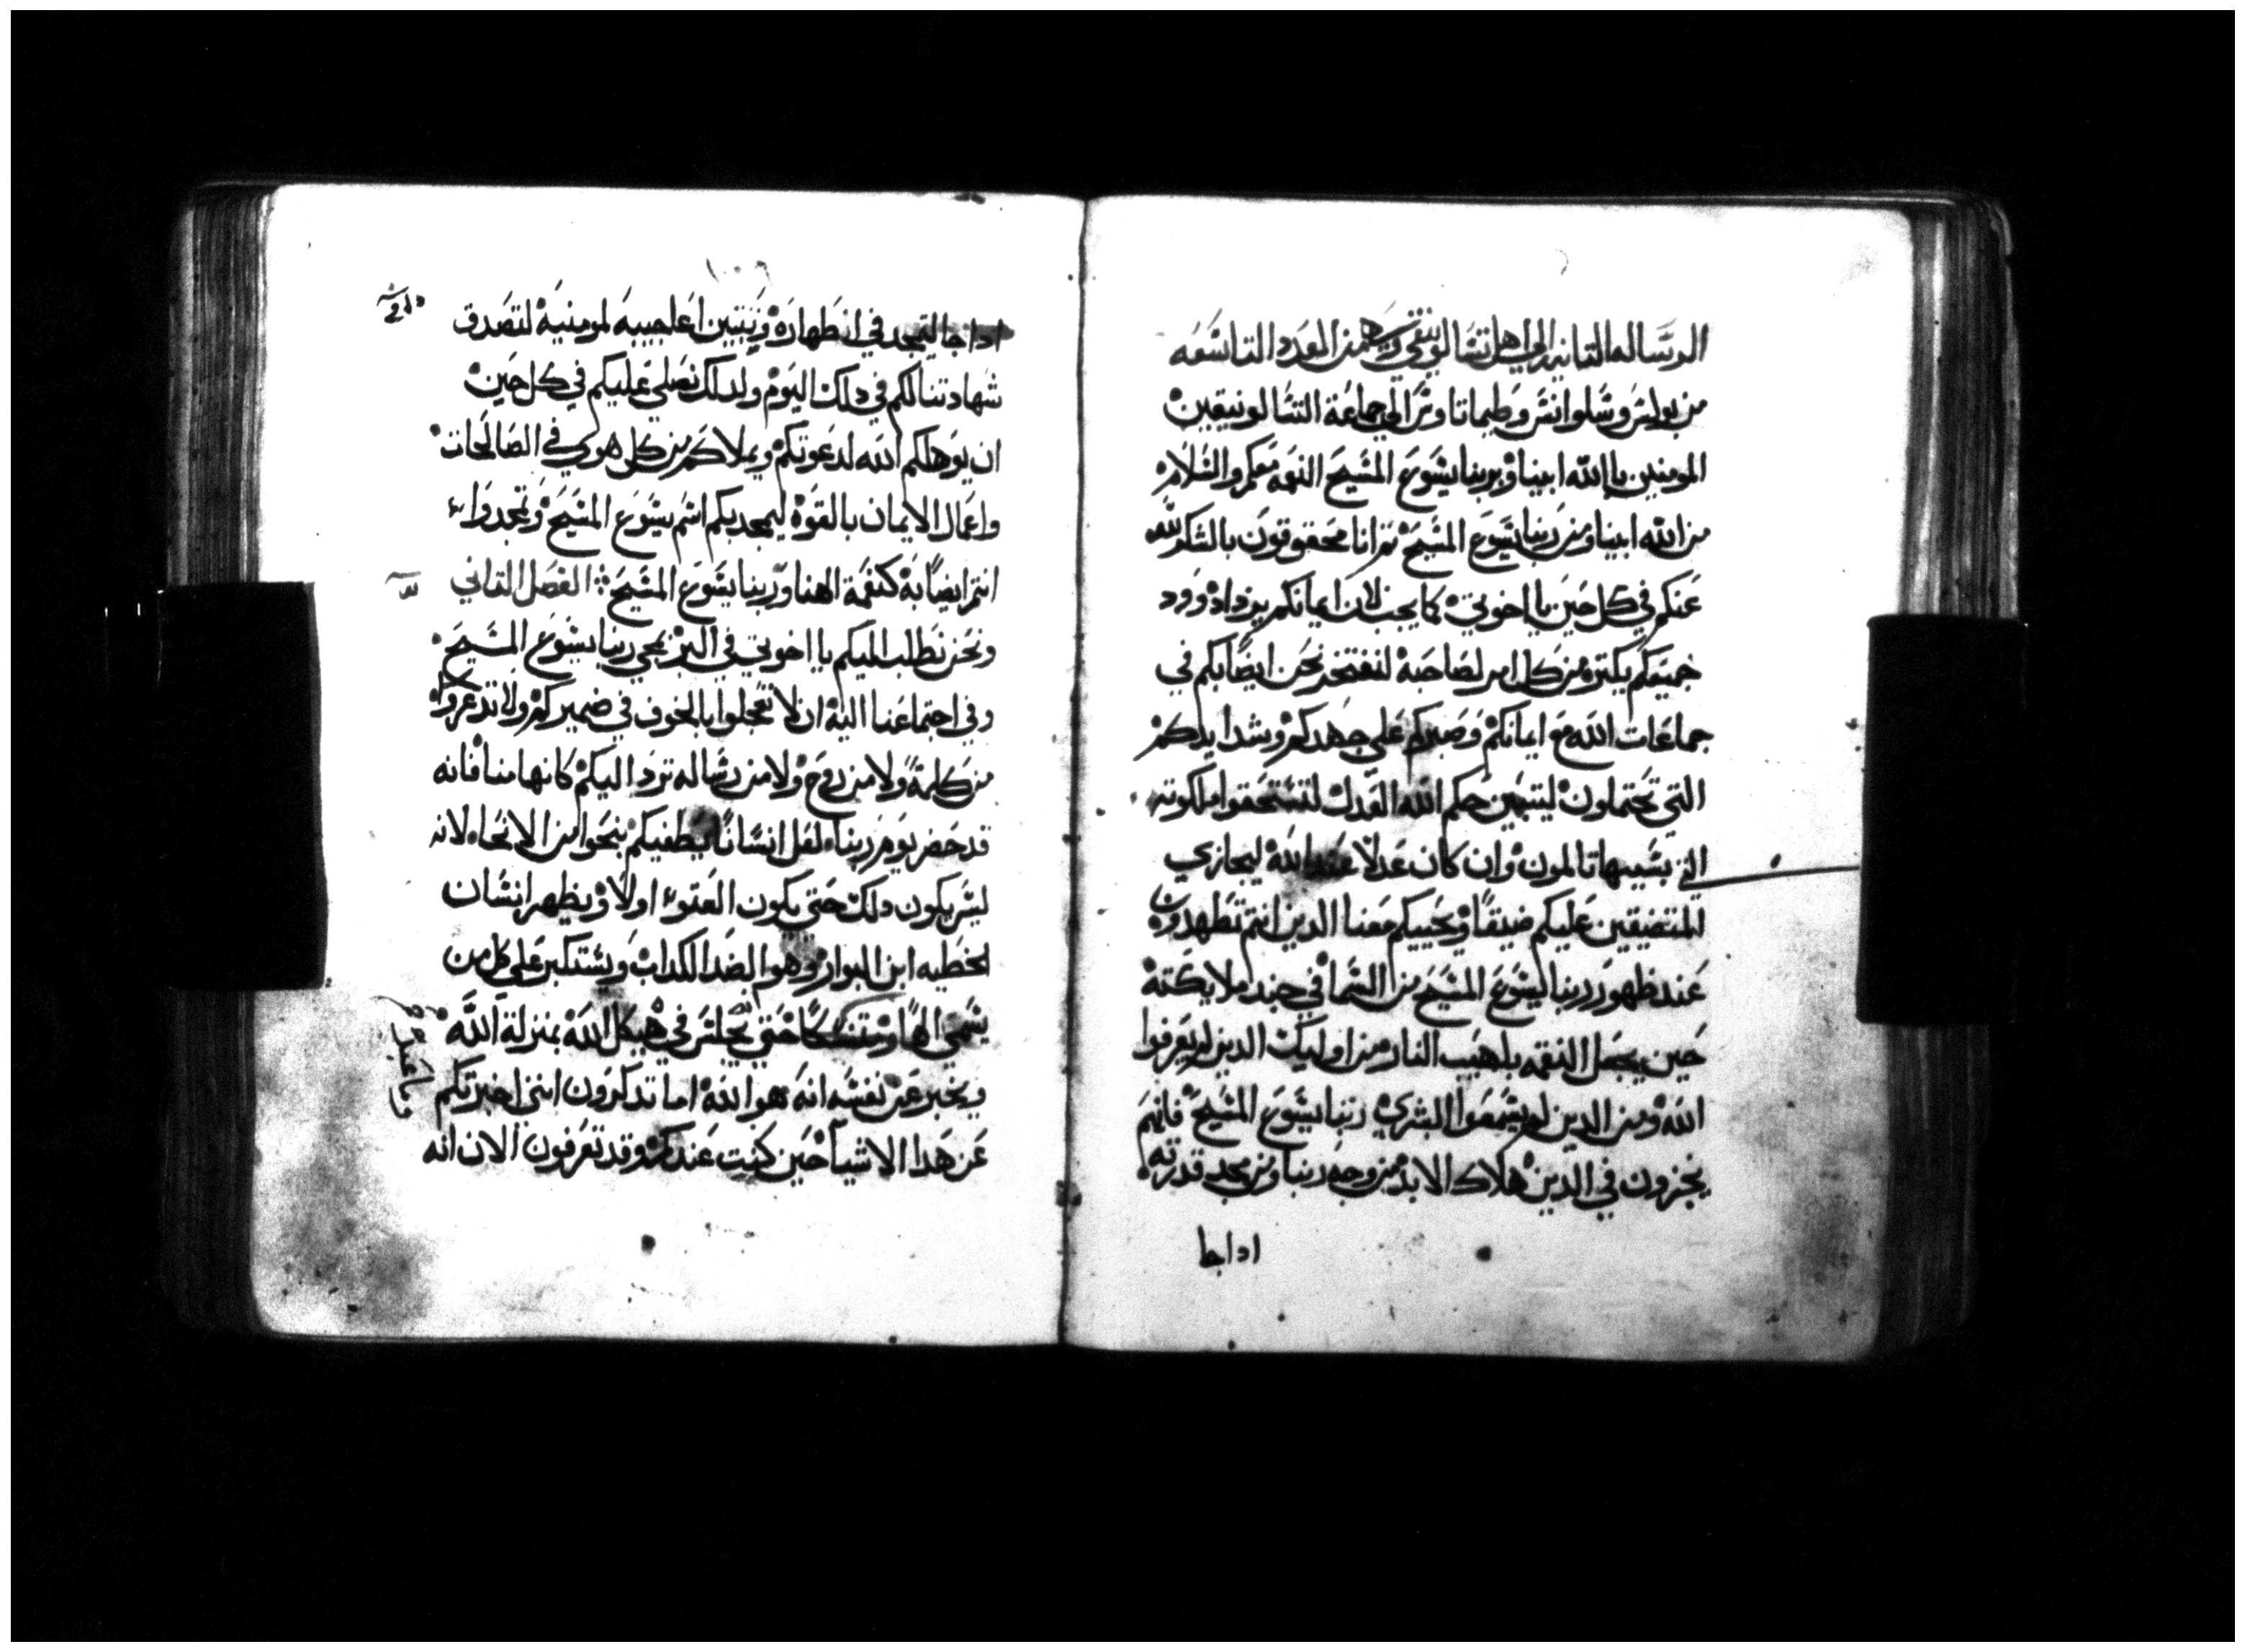 الرساله التانيه الي اهل تسالونيقي وهي من العدد التاسعه
من بولس وسلوانس وطيماتاوس الي جماعة التسالونيقيين
المومنين باالله ابينا وبربنا يسوع المسيح النعمه معكم والسلام
من الله ابينا ومن ربنا يسوع المسيح تم انا محقوقون بالشكر لله
عنكم في كل حين يا اخوتي كما يجب لان ايمانكم يزداد وود
جميعكم يكتر من كل امر لصاحبه لنفتخر نحن ايضا بكم في
جماعات الله مع ايمانكم وصبركم علي جهدكم وشدايدكم
التي تحتملون ليتبين حكم الله العدل لتستحقوا ملكوته
التي بسببها تالمون وان كان عدلا عند الله ليجازي
المتضيقين عليكم ضيقا ويحييكم معنا الدين انتم تظهدون
عند ظهور ربنا يسوع المسيح من السما في جند ملايكته
حين يجعل النقمه بلهيب النار من اوليك الدين لم يعرفوا
الله ومن الدين لم يسمعوا البشري ربنا يسوع المسيح فانهم
يجزون في الدين هلاك الابد من وجه ربنا ومن مجد قدرته
اداجا
اداجا ليتمجد في اظهاره ويتبين اعاجيبه لمومنيه لتصدق
شهادتنا لكم في دلك اليوم ولدلك نصلي عليكم في كل حين
ان يوهلكم الله لدعوتكم ويملاكم من كل هوي في الصالحات
واعمال الايمان بالقوه ليمجد بكم اسم يسوع المسيح وتمجدوا
انتم ايضا به كنعمة الهنا وربنا يسوع المسيح الفصل التاني
ونحن نطلب اليكم يا اخوتي في البر بمجي ربنا يسوع المسيح
وفي اجتماعنا اليه ان لا تعجلوا بالخوف في ضميركم ولا تدعروا
من كلمة ولا من روح ولا من رساله ترد اليكم كانها منا فانه
قد حضر يوم ربنا لعل انسانا يطغيكم بنحوا من الانحاء لانه
ليس يكون دلك حتي يكون العتو اولا ويظهر انسان
الخطيه ابن البوار وهوا الضد الكداب ويستكبر علي كل من
يسمي الها حتي يجلس في هيكل الله بمنزلة الله
ويخبر عن نفسه انه هو الله اما تدكرون انني اخبرتكم
عن هدا الاشيا حين كنت عندكم وقد تعرفون الان انه